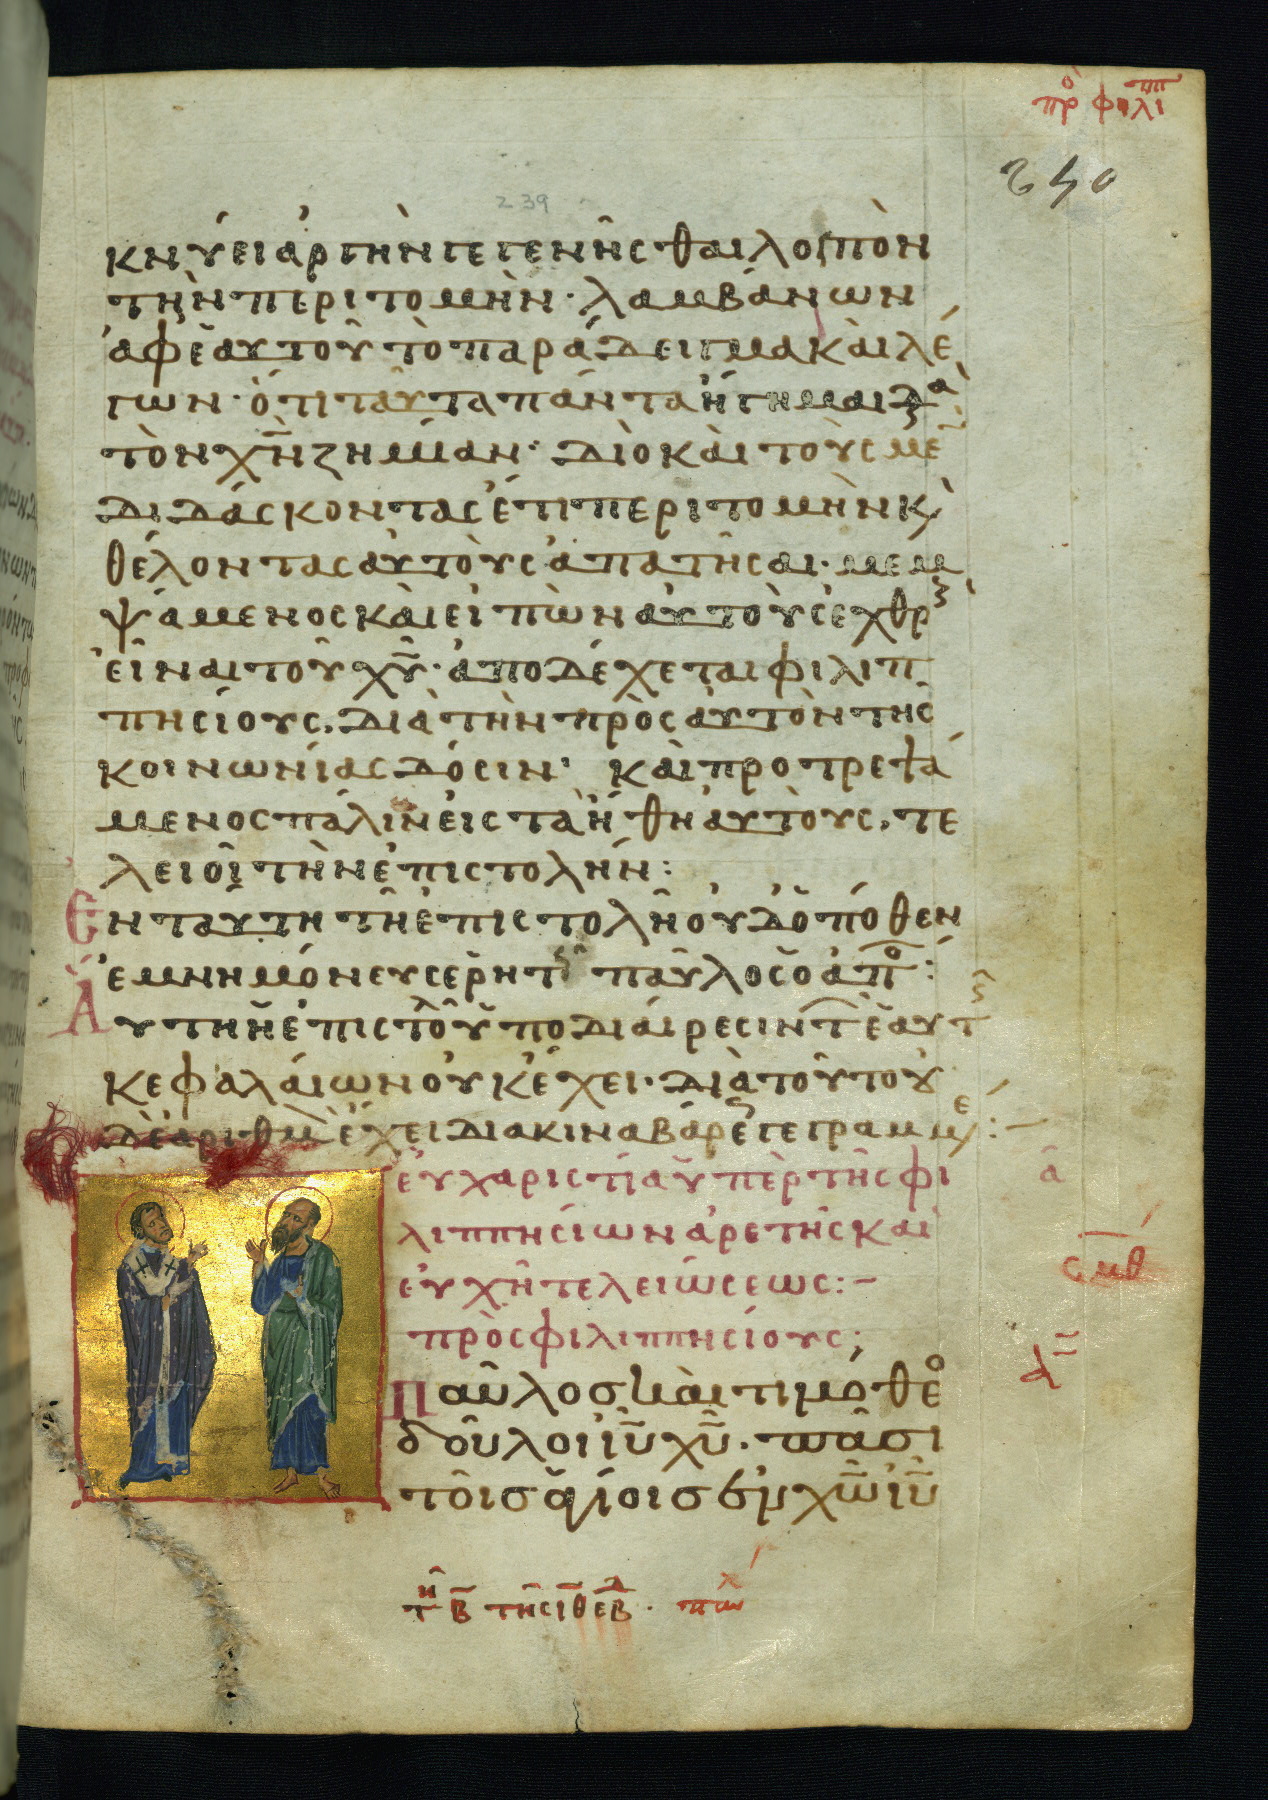 πρὸ φιλιπ
240
239
κνύει ἀργὴν γεγενῆσθαι λοιπὸν
τὴν περιτομήν· λαμβάνων
ἀφ' ἑαυτοῦ τὸ παράδειγμα καὶ λέ
γων· ὅτι ταῦτα πάντα ἥγημαι διὰ
τὸν χ̅ν̅ ζημίαν· διὸ καὶ τοὺς μὲ
διδάσκοντας ἔτι περιτομὴν κ̀
θέλοντας αὐτοὺς ἀπατῆσαι· μεμ
ψάμενος καὶ εἰπὼν αὐτοὺς ἐχθρ
εἶναι τοῦ χ̅υ̅· ἀποδέχεται φιλιπ
πησίους, διὰ τὴν πρὸς αὐτὸν τῆς
κοινωνίας δόσιν· καὶ προτρεψά
μενος πάλιν εἰς τὰ ἤθη αὐτούς, τε
λειοῖ τὴν ἐπιστολήν:
Ἐν ταύτη τῆ ἐπιστολῆ οὐδ' ὁπόθεν
ἐμνημόνευσε ῥητ παῦλος ὁ ἀπο:
Αὕτη ἡ ἐπιστολ ὑποδιαίρεσιν τ ἑαυτ
κεφαλαίων οὐκ ἔχει· διὰ τοῦτο οὐ
δὲ ἀριθμ ἔχει διὰ κιναβάρεως γεγραμμε:—
εὐχαριστία ὑπὲρ τῆς φι
α
λιππησίων ἀρετῆς καὶ
εὐχὴ τελειώσεως:—
σμθ
πρὸς φιλιππησίους;
Παῦλος καὶ τιμόθεο
δοῦλοι ι̅υ̅ χ̅υ̅· πᾶσι
τοῖς ἁγίοις ἐν χ̅ω̅ ι̅υ̅
τη β τῆς ιθ εβδ·